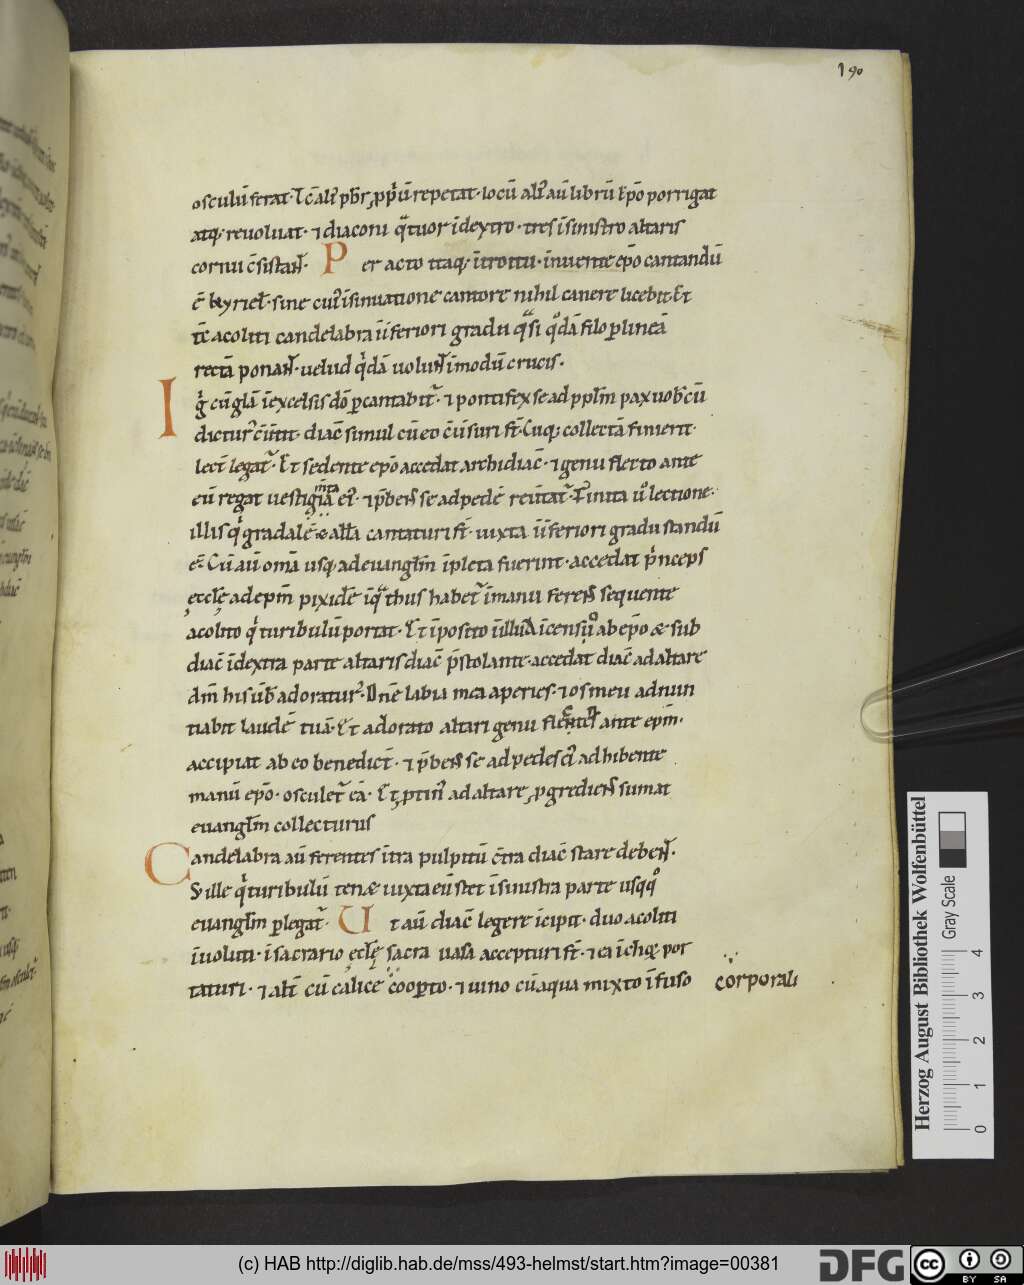 190
osculū ferat· Tc̄ alt̓ pb̄r ꝓpr̓ū repetat· locū alt̓ aū librū ep̄o porrigat
atq; reuoluat· ⁊ diaconi qͣtuor ī dextro· tres ī sinistro altaris
cornu c̄sistan̄t· Peracto itaq; īt͛oitu· īnuente ep̄o cantandū
ē kyriel̄· sine cui᷒ īsinuatione cantore nihil canere licebit· Et
tc̄ acoliti candelabra ī īferiori gradu qͣsi qͦdā filo ꝑ lineā
rectā ponan̄t· uelud qͥdā uolun̄t ī modū crucis·
Igͥ cū głā ī excelsis dō ꝑcantabit᷑· ⁊ pontifex se ad ppłm pax uob̄ cū
dictur᷒ c̄ūtit· diac̄ simul cū eo c̄ūsuri st̄· Cūq; collectā finierit·
lect̄ legat᷑· Et sedente ep̄o accedat archidiac̄· ⁊ genu flexo ante
eū regat uestigm̄ta ei᷒· ⁊ p̄ben̄s se ad pedē reūtat᷑· Finita u̓ lectione·
illis qͥ gradalē & ałła cantaturi st̄· iuxta īferiori gradu standū
ē· Cū aū om̄a usq; ad euangłm īpleta fuerint· accedat pͥnceps
ęcclę̄ ad ep̄m pixidē ī qͣ thus habet᷑ ī manu feren̄s sequente
acolito qͥ turibulū portat· Et īposito ī illud īcensū ab ep̄o & sub
diac̄ ī dextra parte altaris diac̄ p̄stolante· accedat diac̄ ad altare
dm̄ his ūb adoratur᷒· Dn̄e labia mea aperies· ⁊ os meū adnun
tiabit laudē tuā· Et adorato altari genu flexo ante ep̄m·
accipiat ab eo benedict̄· ⁊ p̄ben̄s se ad pedes ei᷒ adhibente
manū ep̄o· osculet᷑ eā· Et ꝓtin᷒ ad altare ꝓgredien̄s sumat
euangłm collecturus
Candelabra aū ferentes īt͛a pulpitū c̄tra diac̄ stare deben̄t·
S; ille qͥ turibulū ten& iuxta eū stet ī sinistra parte usqqͦ
euangłm ꝑlegat᷑· Ut aū diac̄ legere īcipit· duo acoliti
īuoluti· ī sacrario ęclę̄ sacra uasa accepturi st̄· ⁊ ea īchq; por
taturi· ⁊ alt̓ cū calice cooꝑto· ⁊ uino cū aqua mixto īfuso corporali
Herzog August Bibliothek Wolfenbüttel
Gray Scale
0 1 2 3 4
(c) HAB http://diglib.hab.de/mss/493-helmst/start.htm?image=00381
DFG
cc BY SA